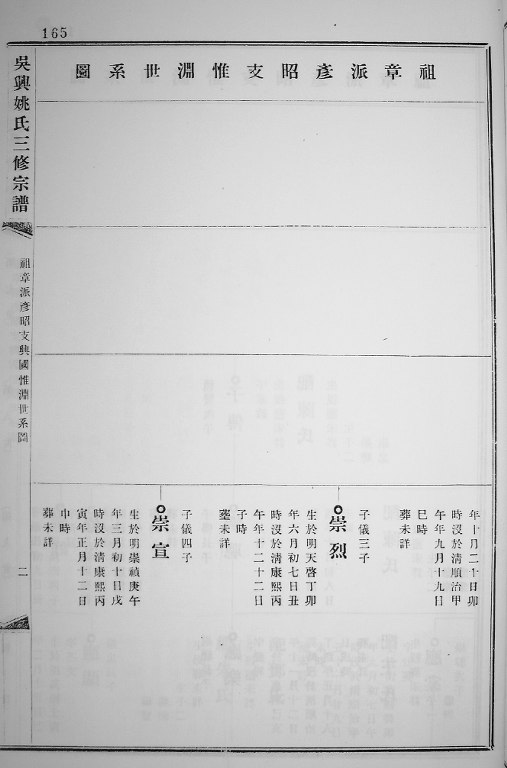 165
祖章派彥昭支惟淵世系圖
年十月二十日卯
時沒於清順治甲
午年九月十九日
巳時
葬未詳
子儀三子
崇烈
生於明天啓丁卯
年六月初七日丑
時沒於清康熙丙
午年十二十二日
子時
葬未詳
子儀四子
崇宣
生於明崇禎庚午
年三月初十日戌
時沒於清康熙丙
寅年正月十二日
申時
葬未詳
吳興姚氏三修宗譜
祖章派彥昭支興國惟淵世系圖
二